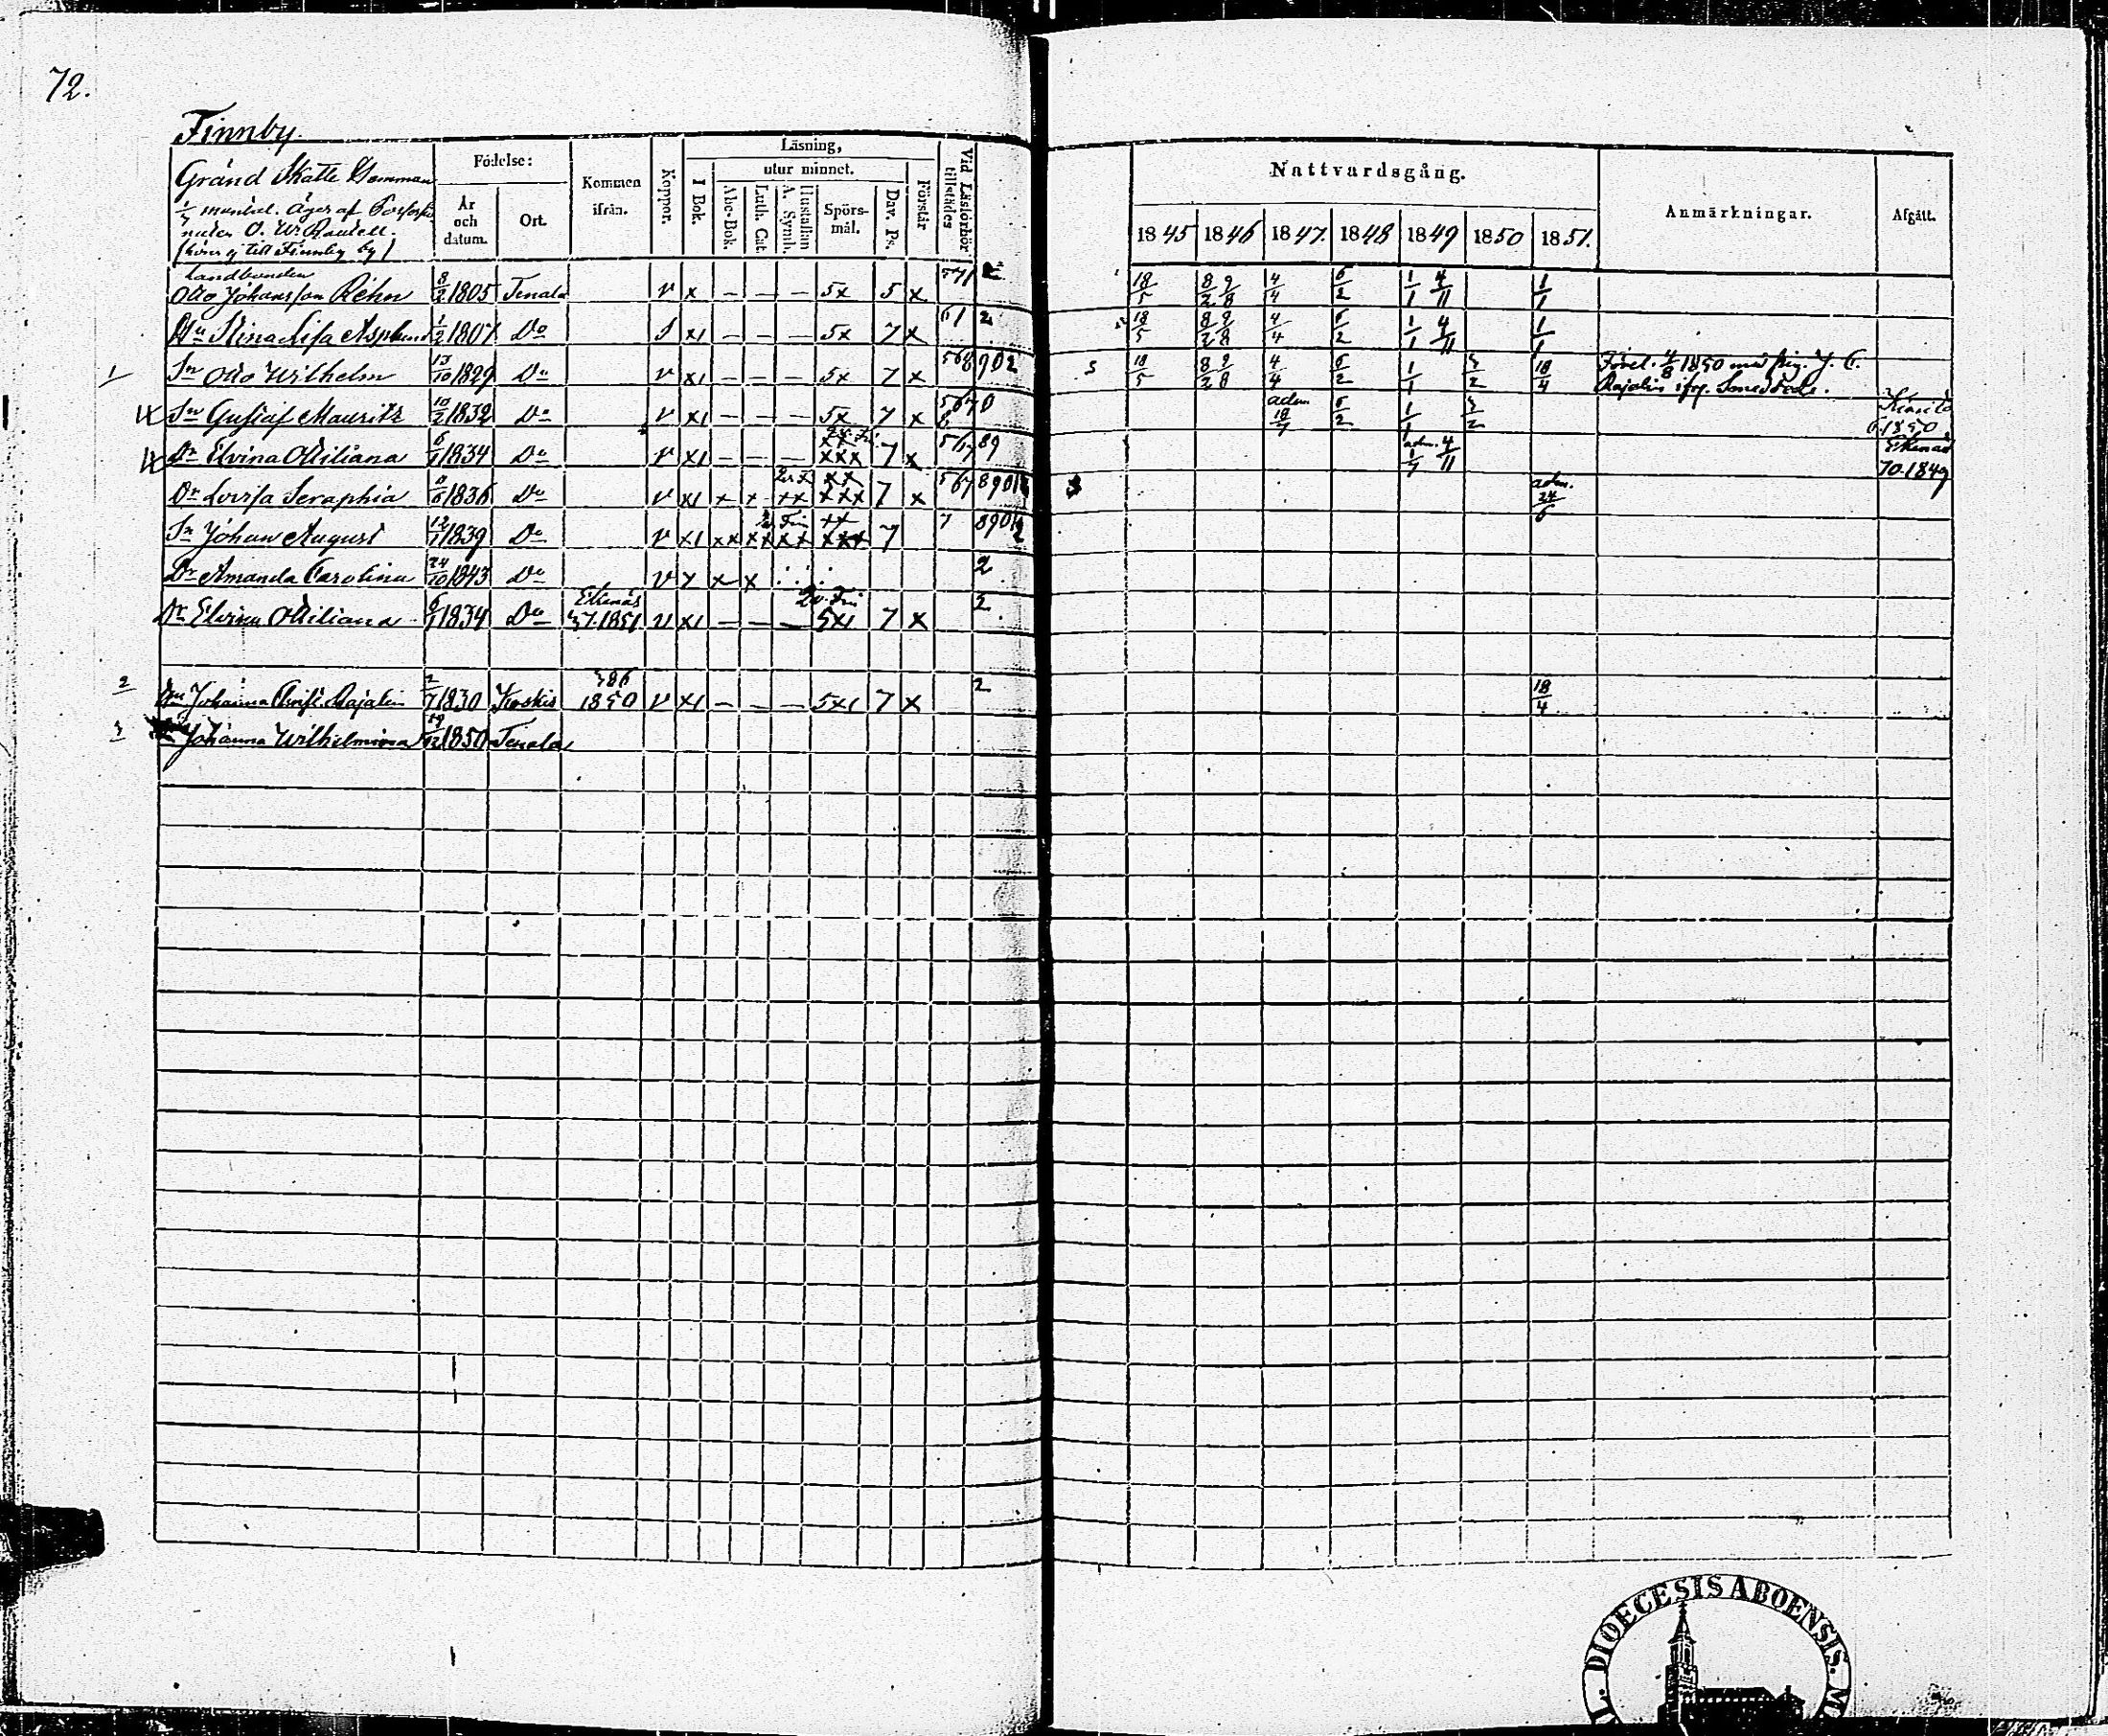 72.
Finnby.
Gränd Skatte Hemman
mantal. Äges af
O. W.
(hörer ej till Finnby by)
Födelse:
År och datum.
Ort.
Kommen ifrån.
Koppor.
Läsning,
I Bok.
utur minnet.
Abc-Bok.
Luth. Cat.
Hustaflan A. Symb.
Spörs-mål.
Dav. Ps.
Förstår
Vid Läsförhör tillstädes
Nattvardsgång.
1845 1846 1847. 1848 1849 1850 1851.
Anmärkningar.
Afgått.
Landbonden
Otto Johansson Rehn 8/2 1805 Tenala v x – – – 5x 5 x 18/5 8/2 9/8 4/4 6/2 1/1 4/11 1/1
Hu Stina Lisa Asplund 1/2 1807 Do xı – – – 5x 7 x 61 2 18/5 8/2 9/8 4/4 6/2 1/1 4/11 1/1
1 Sn Otto Wilhelm 13/10 1829 Do v xı – – – 5x 7 x 568902 18/5 8/2 9/8 4/4 6/2 1/1 3/2 18/4 1850 med pig. J. C.
Rajalin ifrg.
Sn Gustaf Mauritz 10/2 1832 Do v xı – – – 5x 7 x 567 0 adm. 18/7 6/2 1/1 3/2 Kimito
6. 1850
Dr Elvina Otiliana 6/1 1834 Do v xı – – – xxx 7 x 56789 adm. 1/7 4/11 Ekenäs
70. 1849
Dr Lovisa Seraphia 8/6 1836 Do v xı x x xx xxx 7 x 567 8901 adm. 24/6
Sn Johan August 12/1 1839 Do v xı xx xx xx xxx 7 7 8901 2
Dr Amanda Carolina 24/10 1843 Do v x x x 2
Dr Elvina Otiliana 6/1 1834 Do Ekenäs 37. 1851 v xı – – – 5xı 7 x 2
2 Hu Johanna Christ. Rajalin 2/7 1830 Koskis 386 1850 v xı – – – 5xı 7 x 2 18/4
3 Johanna Wilhelmina 1850 Tenala
DIOECESIS ABOENSIS. M